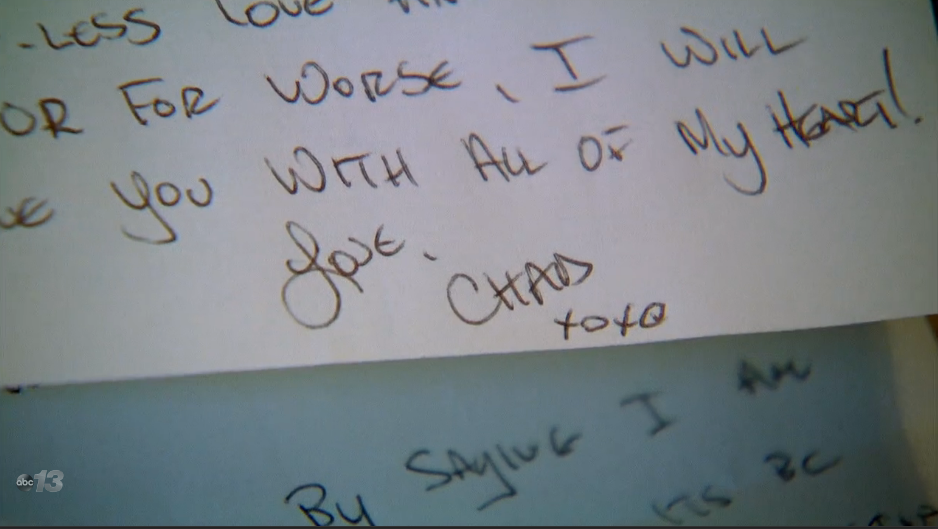 -LESS LOVE
OR FOR WORSE, I WILL
YOU WITH ALL OF My HEART!
Love,
CHAD
xoxo
By SAyING I AM
ITS BC
abc 13